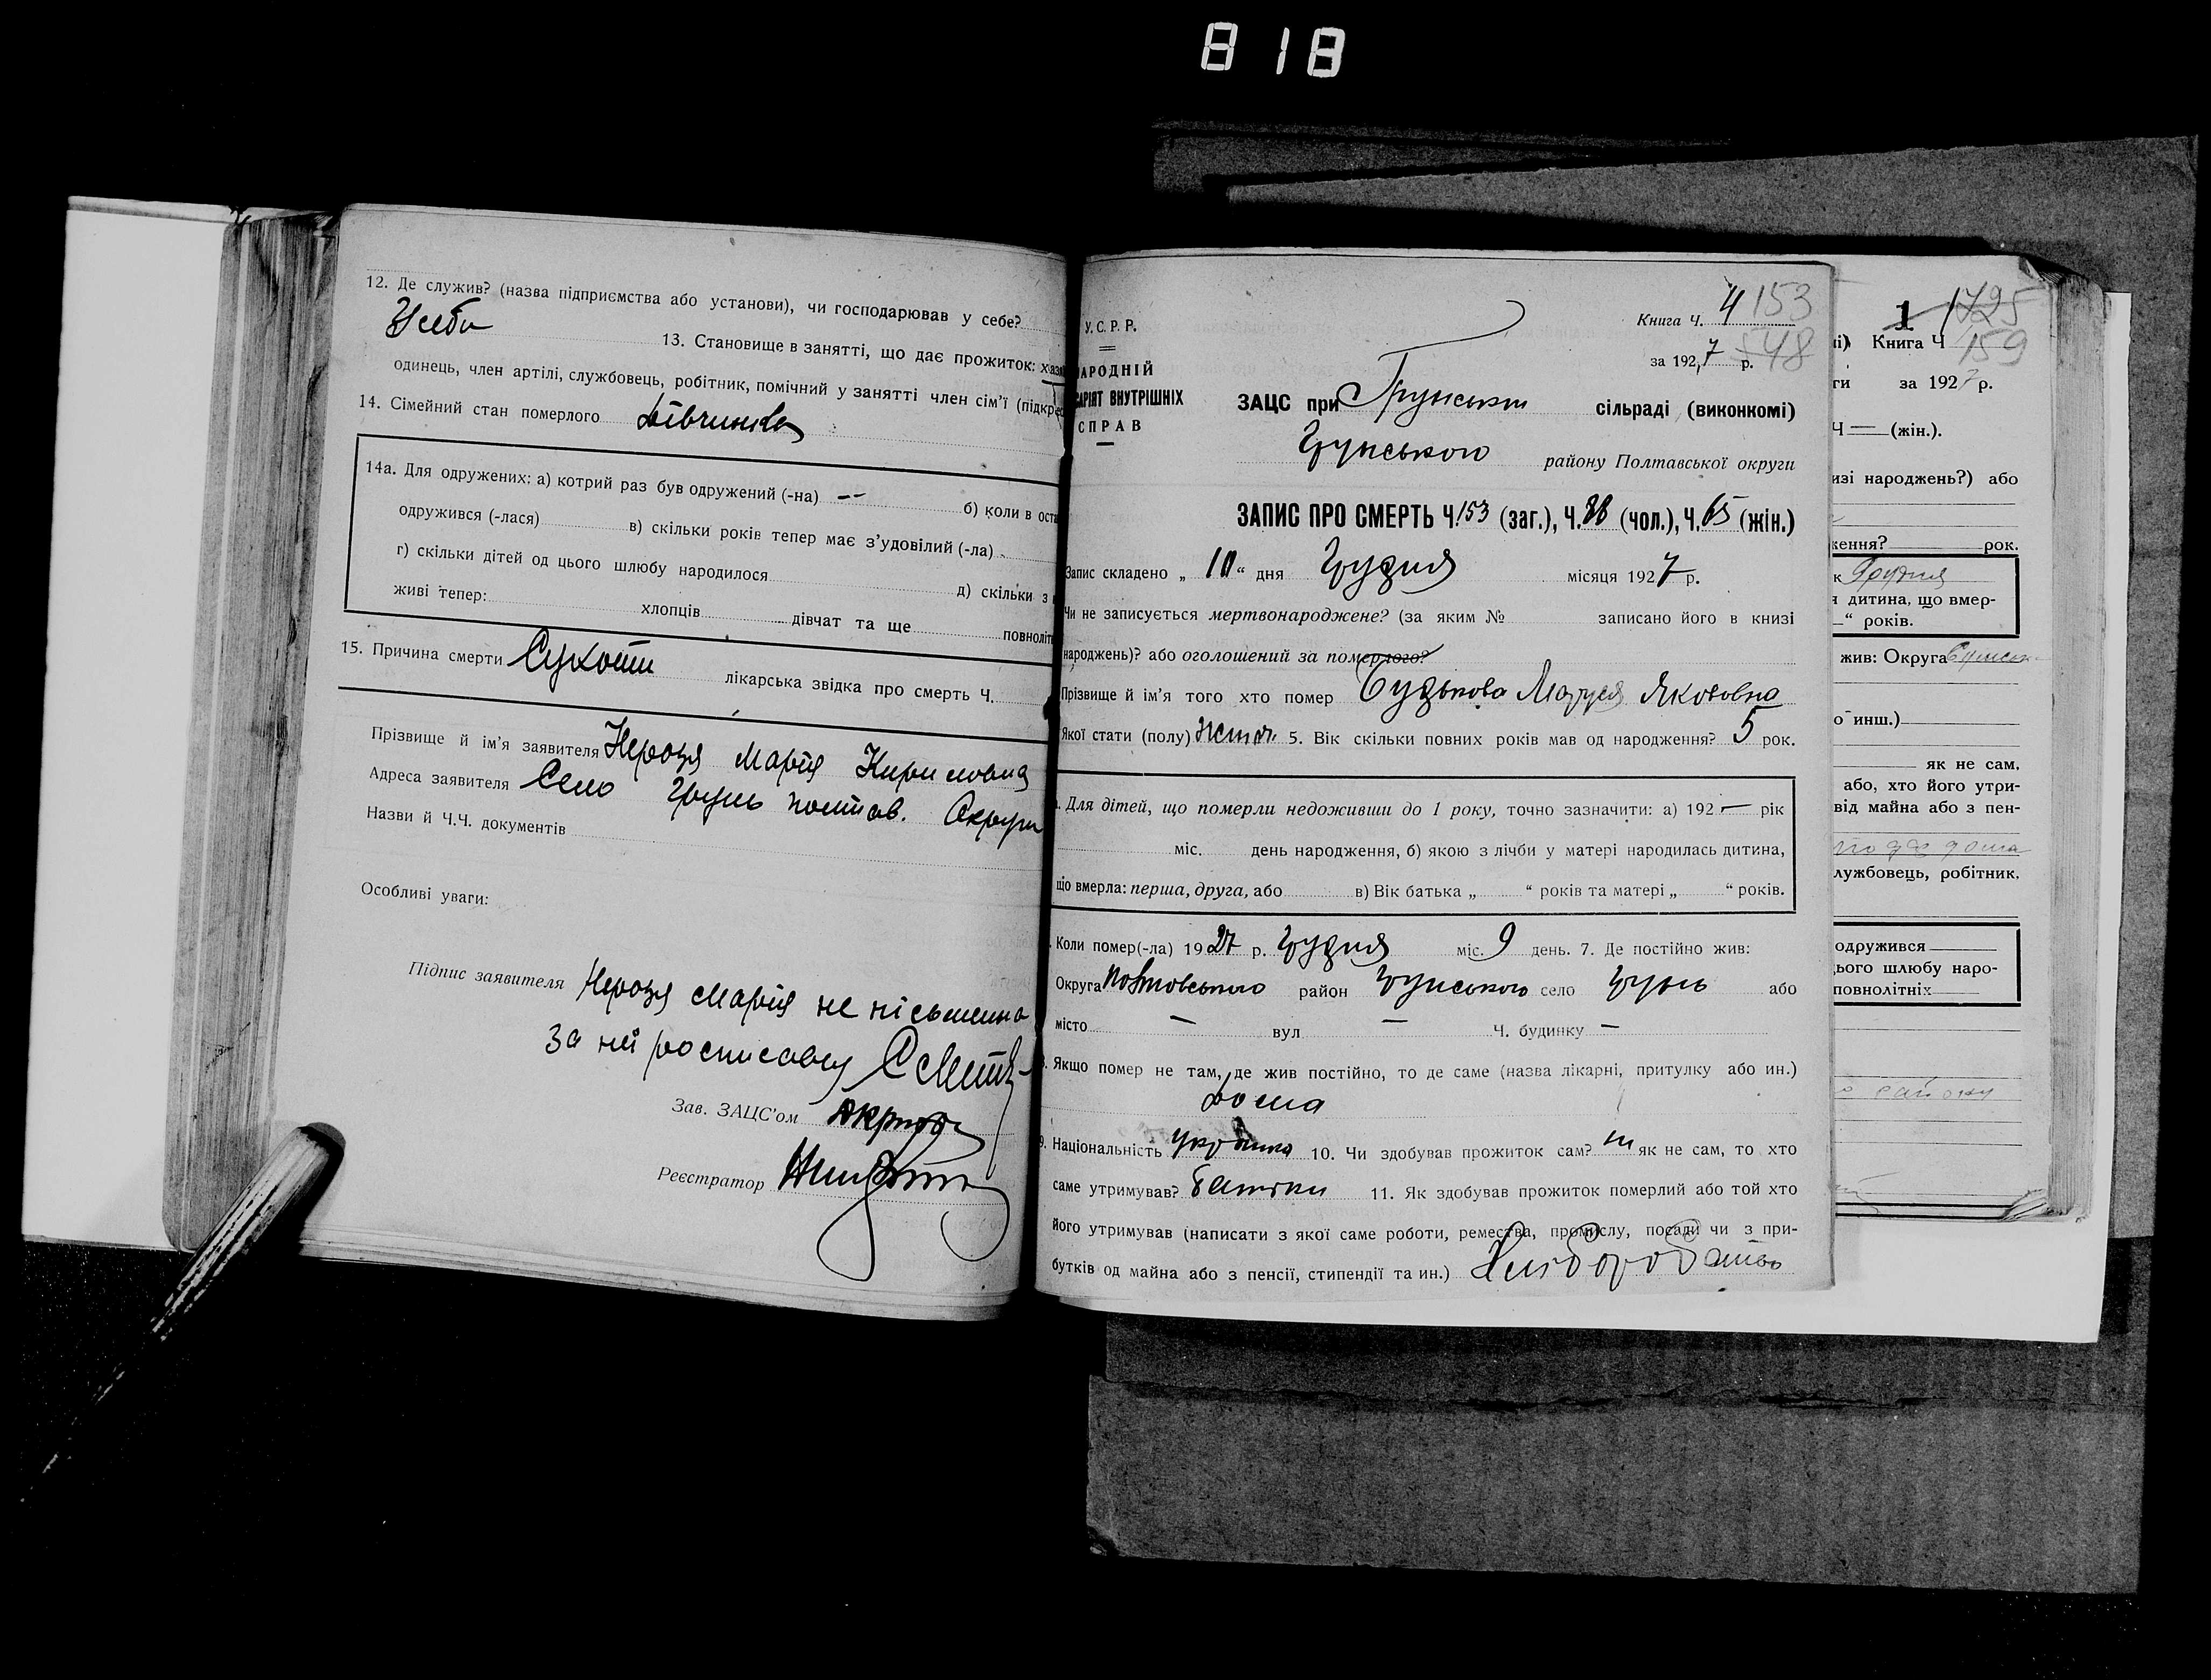 818
12. Де служив? (назва підприємства або установи), чи господарював у себе?
У себе 13. Становище в занятті, що дає прожиток:
одинець, член артілі, службовець, робітник, помічний у занятті член сім'ї
14. Сімейний стан померлого Дівчинка
14а. Для одружених: а) котрий раз був одружений (-на) -- б) коли в
одружився (-лася) в) скільки років тепер має з'удовілий (-ла)
г) скільки дітей од цього шлюбу народилося д) скільки з
живі тепер: хлопців дівчат та ще
15. Причина смерти Сухоти лікарська звідка про смерть Ч.
Прізвище й ім'я заявителя Марія Кириловна
Адреса заявителя Село Грунь Полтав. Округи
Назви й Ч.Ч. документів
Особливі уваги:
Підпис заявителя Марія не пісьменна
за неї росписався
Зав. ЗАЦС'ом
Реєстратор
У.С.Р.Р.
Книга Ч. 4 153
548
за 1927 р.
ВНУТРІШНІХ
СПРАВ
ЗАЦС при Грунській сільраді (виконкомі)
Грунського району Полтавської округи
ЗАПИС ПРО СМЕРТЬ Ч. 153 (заг.), Ч. 88 (чол.), Ч. 65 (жін.)
Запис складено „ 10 “ дня Грудня місяця 1927 р.
Чи не записується мертвонароджене? (за яким № записано його в книзі
народжень)? або оголошений за померлого?
Прізвище й ім'я того хто помер Будькова Маруся Якововна
Якої стати (полу) 5. Вік скільки повних років мав од народження? 5 рок.
Для дітей, що померли недоживши до 1 року, точно зазначити: а) 192 — рік
міс. день народження, б) якою з лічби у матері народилась дитина,
що вмерла: перша, друга, або в) Вік батька „ “ років та матері „ “ років.
Коли помер(-ла) 1927 р. Грудня міс. 9 день. 7. Де постійно жив:
Округа район Грунського село Грунь або
місто — вул — Ч. будинку —
Якщо помер не там, де жив постійно, то де саме (назва лікарні, притулку або ин.)
Дома
9. Національність 10. Чи здобував прожиток сам? ні як не сам, то хто
саме утримував? батьки 11. Як здобував прожиток померлий або той хто
його утримував (написати з якої саме роботи, ремества, промислу, посади чи з при-
бутків од майна або з пенсії, стипендії та ин.) Хліборобство
1 1725
Книга Ч 159
за 1927 р.
Ч — (жін.).
народжень?) або
рок.
Грудня
дитина, що вмер-
“ років.
жив: Округа
инш.)
як не сам,
або, хто його утри-
від майна або з пен-
службовець, робітник,
одружився
цього шлюбу наро-
повнолітніх